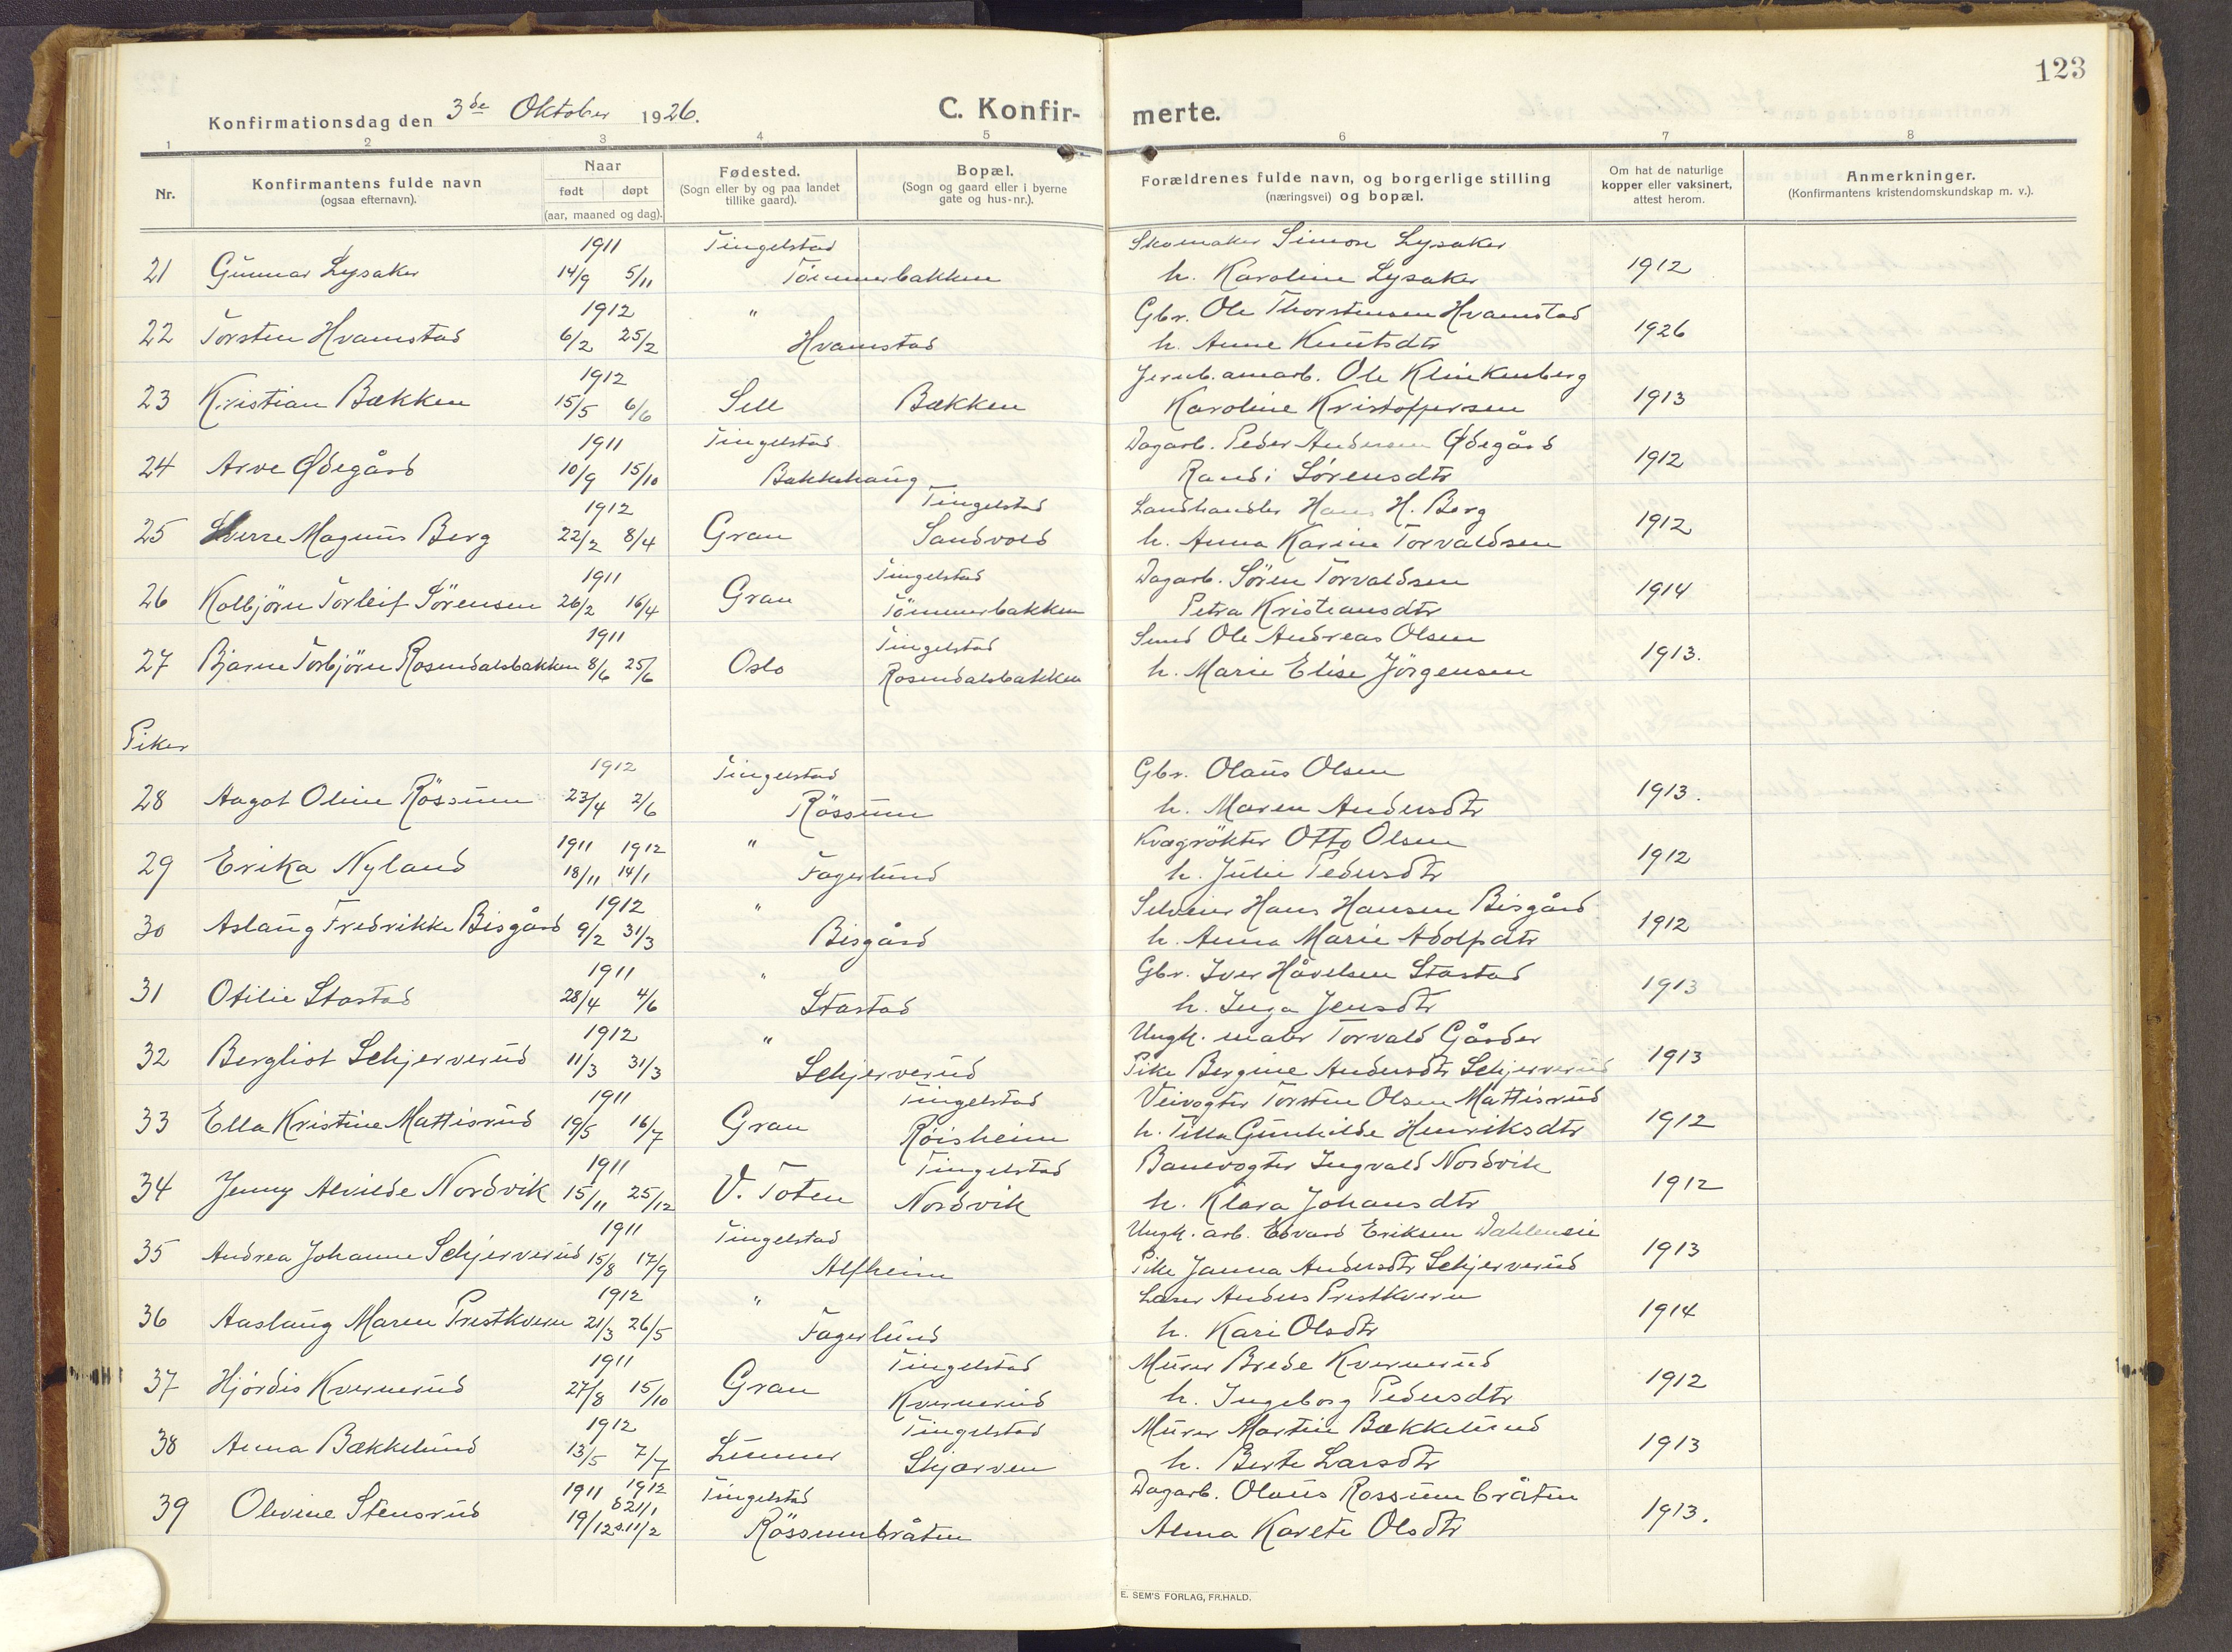 123
Konfirmationsdag den 3de Oktober 1926.
C. Konfir- merte.
1 2 3 4 5 6 7 8
Nr.
Konfirmantens fulde navn
(ogsaa efternavn).
Naar
født døpt
(aar, maaned og dag).
Fødested.
(Sogn eller by og paa landet
tillike gaard).
Bopæl.
(Sogn og gaard eller i byerne
gate og hus-nr.).
Forældrenes fulde navn, og borgerlige stilling
(næringsvei) og bopæl.
Om hat de naturlige
kopper eller vaksinert,
attest herom.
Anmerkninger.
(Konfirmantens kristendomskundskap m. v.).
1911 Tingelstad Skomaker Simon Lysaker
21 Gunnar Lysaker 14/9 5/11 Tömmerbakken h. Karoline Lysaker 1912
1912 " Gbr. Ole Thorstensen Hvamstad
22 Torsten Hvamstad 6/2 25/2 Hvamstad h. Anne Knutsdtr 1926
1912 Jernb.anarb. Ole Klinkenberg
23 Kristian Bækken 15/5 6/6 Sell Bækken Karoline Kristoffersen 1913
1911 Tingelstad Dagarb. Peder Andersen Ødegård
24 Arve Ødegård 10/9 15/10 Bakkehaug Randi Sørensdtr 1912
1912 Tingelstad Landhandler Hans H. Berg
25 Sverre Magnus Berg 22/2 8/4 Gran Sandvold h. Anna Karine Torvaldsen 1912
1911 Tingelstad Dagarb. Sören Torvaldsen
26 Kolbjörn Torleif Sörensen 26/2 16/4 Gran Tömmerbakken Petra Kristiansdtr 1914
1911 Tingelstad Smed Ole Andreas Olsen
27 Bjarne Torbjörn Rosendalsbakken 8/6 25/6 Oslo Rosendalsbakken h. Marie Elise Jörgensen 1913.
Piker
1912 Tingelstad Gbr. Olaus Olsen
28 Aagot Oline Rössum 23/4 2/6 Rössum h. Maren Andersdtr 1913.
1911 1912 " Kvægrökter Otto Olsen
29 Erika Nyland 18/11 14/1 Fagerlund h. Julie Pedersdtr 1912
1912 " Selveier Hans Hansen Bisgård
30 Aslaug Fredrikke Bisgård 9/2 31/3 Bisgård h. Anna Marie Adolfsdtr 1912
1911 " Gbr. Iver Håvelsen Stastad
31 Otilie Stastad 28/4 4/6 Stastad h. Inga Jensdtr 1913
1912 " Ungk. maler Torvald Gårder
32 Bergliot Schjerverud 11/3 31/3 Schjerverud Pike Bergine Andersdtr Schjerverud 1913
1911 Tingelstad Veivogter Torsten Olsen Mattisrud
33 Ella Kristine Mattisrud 19/5 16/7 Gran Röisheim h. Tilla Gunhilde Henriksdtr 1912
1911 Tingelstad Banevogter Ingvald Nordvik
34 Jenny Alvilde Nordvik 15/11 25/12 V. Toten Nordvik h. Klara Johansdtr 1912
1911 Tingelstad Ungk. arb. Edvard Eriksen Dahleneie
35 Andrea Johanne Schjerverud 15/8 17/9 Alfheim Pike Janna Andersdtr Schjerverud 1913
1912 " Anders Prestkvern
36 Aaslaug Maren Prestkvern 21/3 26/5 Fagerlund h. Kari Olsdtr 1914
1911 Tingelstad Murer Brede Kvernerud
37 Hjördis Kvernerud 27/8 15/10 Gran Kvernerud h. Ingeborg Pedersdtr 1912
1912 Tingelstad Murer Martin Bækkelund
38 Anna Bækkelund 13/5 7/7 Lunner Skjarven h. Berte Larsdtr 1913
1911 1912 Tingelstad Dagarb. Olaus Rossumbråten
39 Olevine Stensrud 19/12 21/1 11/2 Rössumbråten Alma Karete Olsdtr 1913.
E. SEM'S FORLAG, FR.HALD.